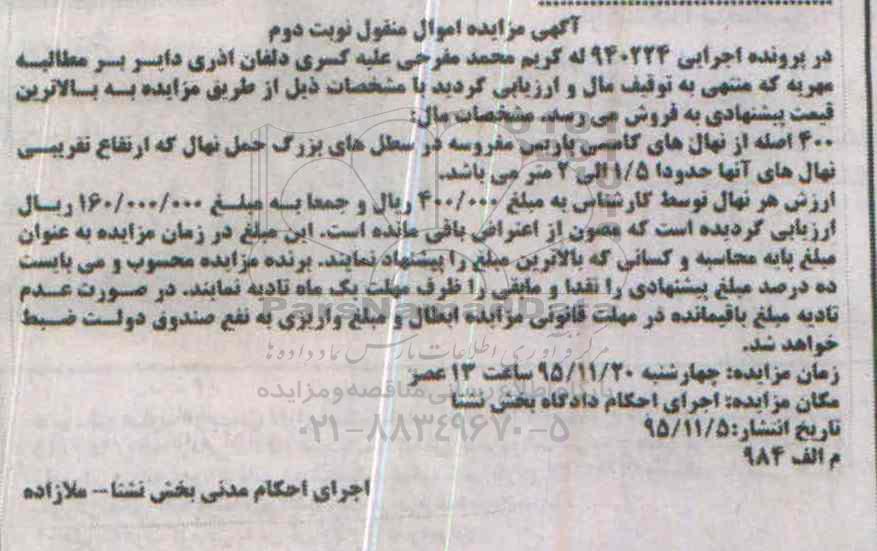 آگهی مزایده اموال منقول نوبت دوم
در پرونده اجرایی ۹۴۰۲۲۴ له کریم محمد مفرحی علیه کسری دلفان اذری دایر بر مطالبه
مهریه که منتهی به توقیف مال و ارزیابی گردید با مشخصات ذیل از طریق مزایده به بالاترین
قیمت پیشنهادی به فروش می رسد. مشخصات مال:
۴۰۰ اصله از نهال های کامسی پاریس مغروسه در سطل های بزرگ حمل نهال که ارتفاع تقریبی
نهال های آنها حدودا ۱/۵ الی ۲ متر می باشد.
ارزش هر نهال توسط کارشناس به مبلغ ۴۰۰/۰۰۰ ریال و جمعا به مبلغ ۱۶۰/۰۰۰/۰۰۰ ریال
ارزیابی گردیده است که مصون از اعتراض باقی مانده است. این مبلغ در زمان مزایده به عنوان
مبلغ پایه محاسبه و کسانی که بالاترین مبلغ را پیشنهاد نمایند. برنده مزایده محسوب و می بایست
ده درصد مبلغ پیشنهادی را نقدا و مابقی را ظرف مهلت یک ماه تادیه نمایند. در صورت عدم
تادیه مبلغ باقیمانده در مهلت قانونی مزایده ابطال و مبلغ واریزی به نفع صندوق دولت ضبط
خواهد شد.
زمان مزایده: چهارشنبه ۹۵/۱۱/۲۰ ساعت ۱۳ عصر
مکان مزایده: اجرای احکام دادگاه بخش نشتا
تاریخ انتشار: ۹۵/۱۱/۵
م الف ۹۸۴
اجرای احکام مدنی بخش نشتا – ملازاده
ParsNamadData
مرکز فرآوری اطلاعات پارس نماد داده ها
پایگاه اطلاع رسانی مناقصه و مزایده
۰۲۱-۸۸۳۴۹۶۷۰-۵